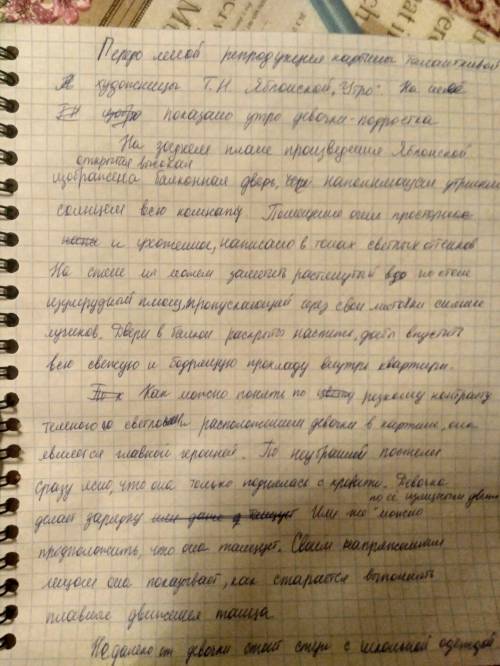 Передо мной репродукция картины талантливой
художницы Т.Н. Яблонской "Утро". На ней
показано утро девочки-подростка
На заднем плане произведения Яблонской
открытая высокая
изображена балконная дверь, наполняющая утренним
солнцем всю комнату. Помещение очень просторное
и ухоженное, написано в тонах светлых оттенков
На стене мы можем заметить растянутый по стене
изумрудный плющ, пропускающий через свои листочки сияние
лучиков. Двери в балкон раскрыты настежь, дабы впустить
всю свежую и бодрящую прохладу внутрь квартиры.
Как можно понять по резкому контрасту
темного со светлым и расположению девочки в картине, она
является главной героиней. По неубранной постели
сразу ясно, что она только поднялась с кровати. Девочка
по её изящному
делает зарядку Или же можно
предположить, что она танцует. Своим напряжённым
лицом она показывает, как старается выполнить
плавные движения танца.
Недалеко от девочки стоит стул с школьной одеждой